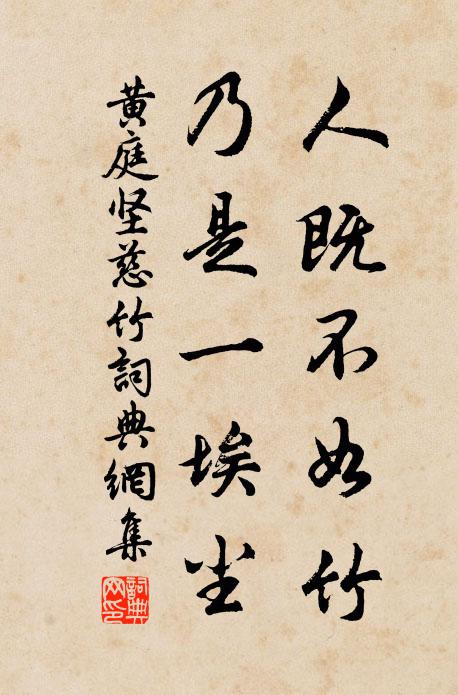 人既不如竹
乃是一埃尘
黄庭坚慈竹詞典網集
詞典
网印